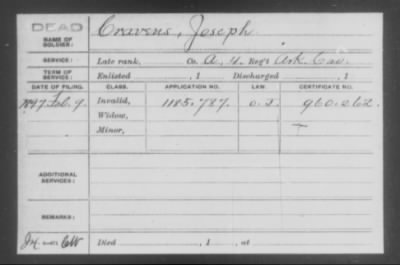 DEAD
NAME OF SOLDIER: Cravens, Joseph
SERVICE: Late rank, Co. A, 4. Reg't Ark. Cav.
TERM OF SERVICE: Enlisted , 1 Discharged , 1
DATE OF FILING. CLASS. APPLICATION NO. LAW. CERTIFICATE NO.
1897. Feb. 9. Invalid, 1185.787. 960.262
Widow,
Minor,
ADDITIONAL SERVICES:
REMARKS:
Died , 1 , at